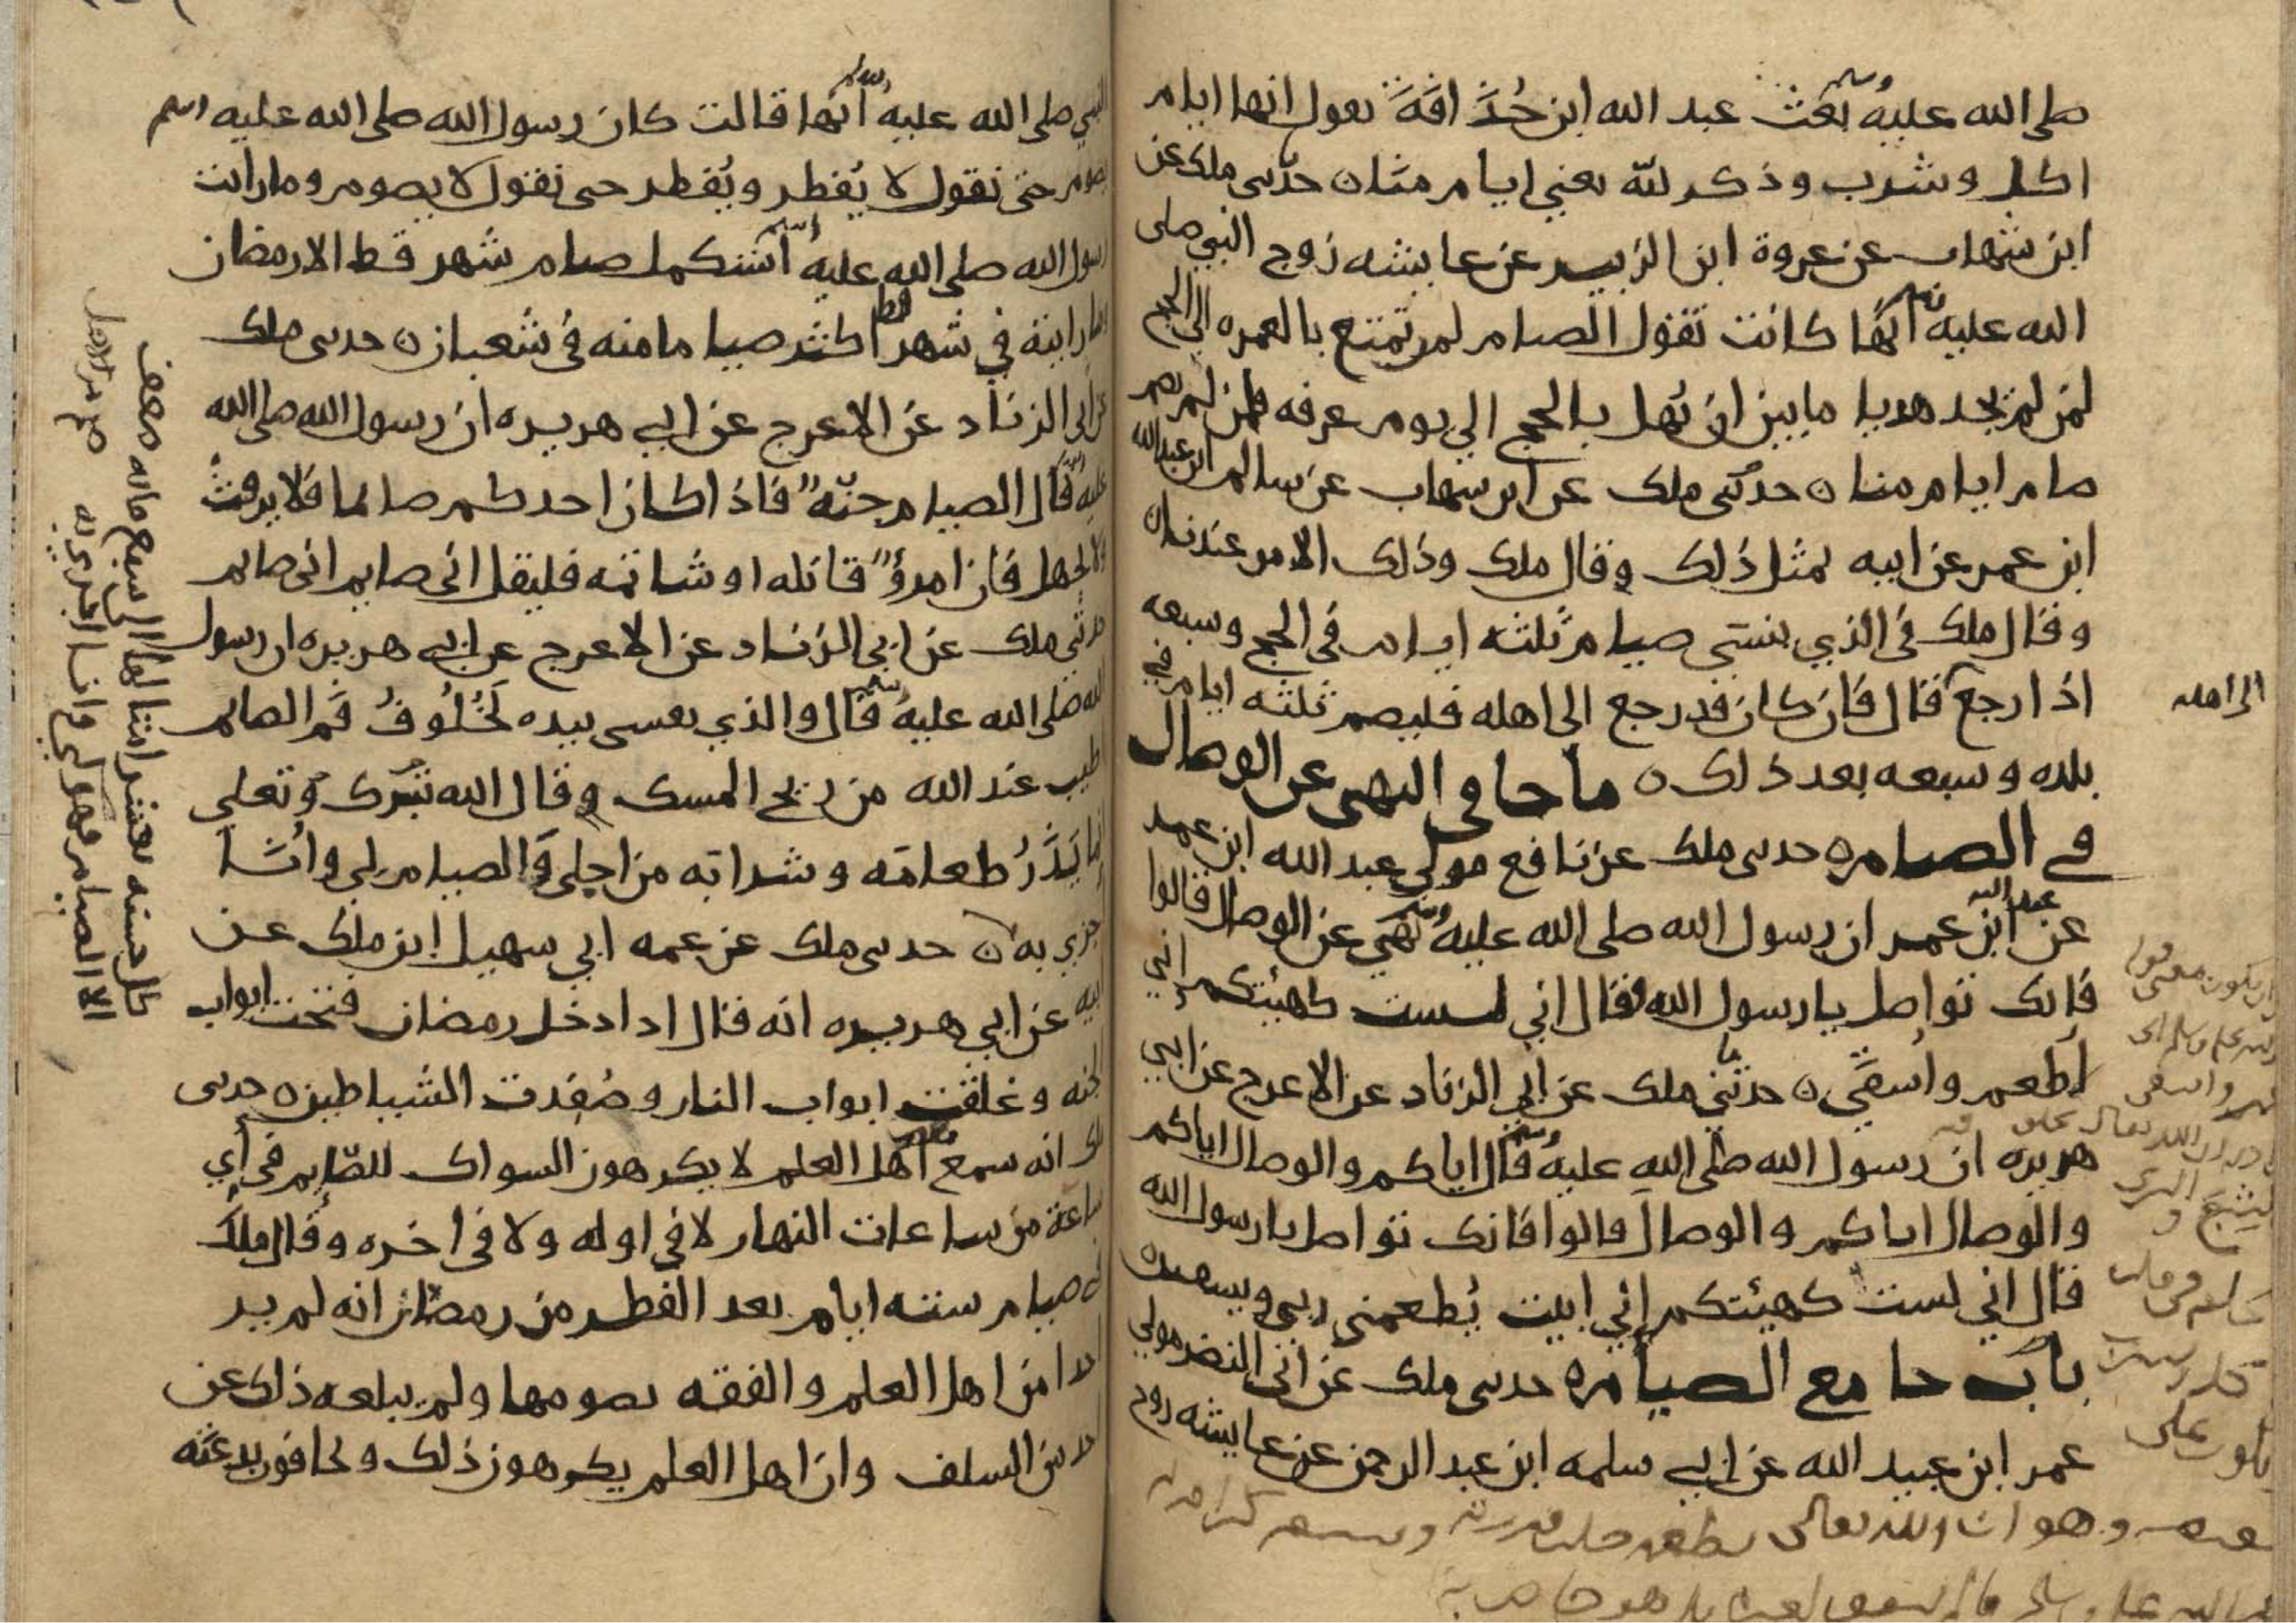 صلى الله عليه وسلم بعث عبد الله ابن حُذَافَةَ يقول انها ايام
اكل وشرب وذكر لله يعني ايام منا ه حدثني ملك عن
ابن شهاب عن عروة ابن الزبير عن عايشه زوج النبي صلى
الله عليه وسلم انها كانت تقول الصيام لمن تمتع بالعمره الى الحج
لمن لم يجد هديا ما بين ان يُهل بالحج الي يوم عرفه فمن لم يصم
صام ايام منا ه حدثني ملك عن ابن شهاب عن سالم ابن عبد الله
ابن عمر عن ابيه بمثل ذلك وقال ملك وذلك الامر عندنا ه
وقال ملك في الذي ينسي صيام ثلثه ايام في الحج وسبعه
اذا رجع قال فان كان قد رجع الى اهله فليصم ثلثه ايام في
الى اهله
بلده وسبعه بعد ذلك ه ما جا في النهي عن الوصال
في الصيام ه حدثني ملك عن نافع مولي عبد الله ابن عمر
عن عبد الله ابن عمر ان رسول الله صلى الله عليه وسلم نهي عن الوصال قالوا
فانك تواصل يا رسول الله فقال اني لست كهيئتكم إني
أُطعم وأسقَي ه حدثني ملك عن أبي الزناد عن الاعرج عن ابي
هريره ان رسول الله صلى الله عليه وسلم قال اياكم والوصال اياكم
والوصال اياكم والوصال قالوا فانك تواصل يا رسول الله
قال اني لست كهيئتكم إني ابيت يُطعمني ربي ويسقين ه
باب جامع الصيام ه حدثني ملك عن ابي النضر مولي
عمر ابن عبيد الله عن ابي سلمه ابن عبد الرحمن عن عايشه زوج
وهو ان الله تعالى
النبي صلى الله عليه وسلم أنها قالت كان رسول الله صلى الله عليه وسلم
يصوم حتى نقول لا يُفطر ويُفطر حتى نقول لا يصوم وما رايت
رسول الله صلى الله عليه وسلم استكمل صيام شهر قط الا رمضان
وما رايته في شهر قط اكثر صياما منه في شعبان ه حدثني ملك
عن ابي الزناد عن الاعرج عن ابي هريره ان رسول الله صلى الله
عليه وسلم قال الصيام جنّة فاذا كان احدكم صائما فلا يرفثْ
ولا يجهل فان امرؤ قاتله او شاتمه فليقل اني صايم اني صايم
حدثني ملك عن ابي الزناد عن الاعرج عن ابي هريره ان رسول
الله صلى الله عليه وسلم قال والذي نفسي بيده لَخُلُوفُ فَم الصائم
اطيب عند الله من ريح المسك وقال الله تبرك وتعلى
إنما يَذَرُ طعامَه وشرابه من اجلي فالصيام لي وانا
اجزي به ه حدثني ملك عن عمه ابي سهيل ابن ملك عن
ابيه عن ابي هريره انه قال اذا دخل رمضان فتحت ابواب
الجنه وغلقت ابواب النار وصُفدت الشياطين ه حدثني
ملك انه سمع اهل العلم لا يكرهون السواك للصّايم في أي
ساعة من ساعات النهار لا في اوله ولا في اخره وقال ملك
في صيام سته ايام بعد الفطر من رمضان انه لم ير
احدا من اهل العلم والفقه يصومها ولم يبلغه ذلك عن
احد من السلف وان اهل العلم يكرهون ذلك ويخافون بدعتَه
كل حسنه بعشر امثالها الى سبع مائه ضعف
الا الصيام فهو لي وانا اجزي به